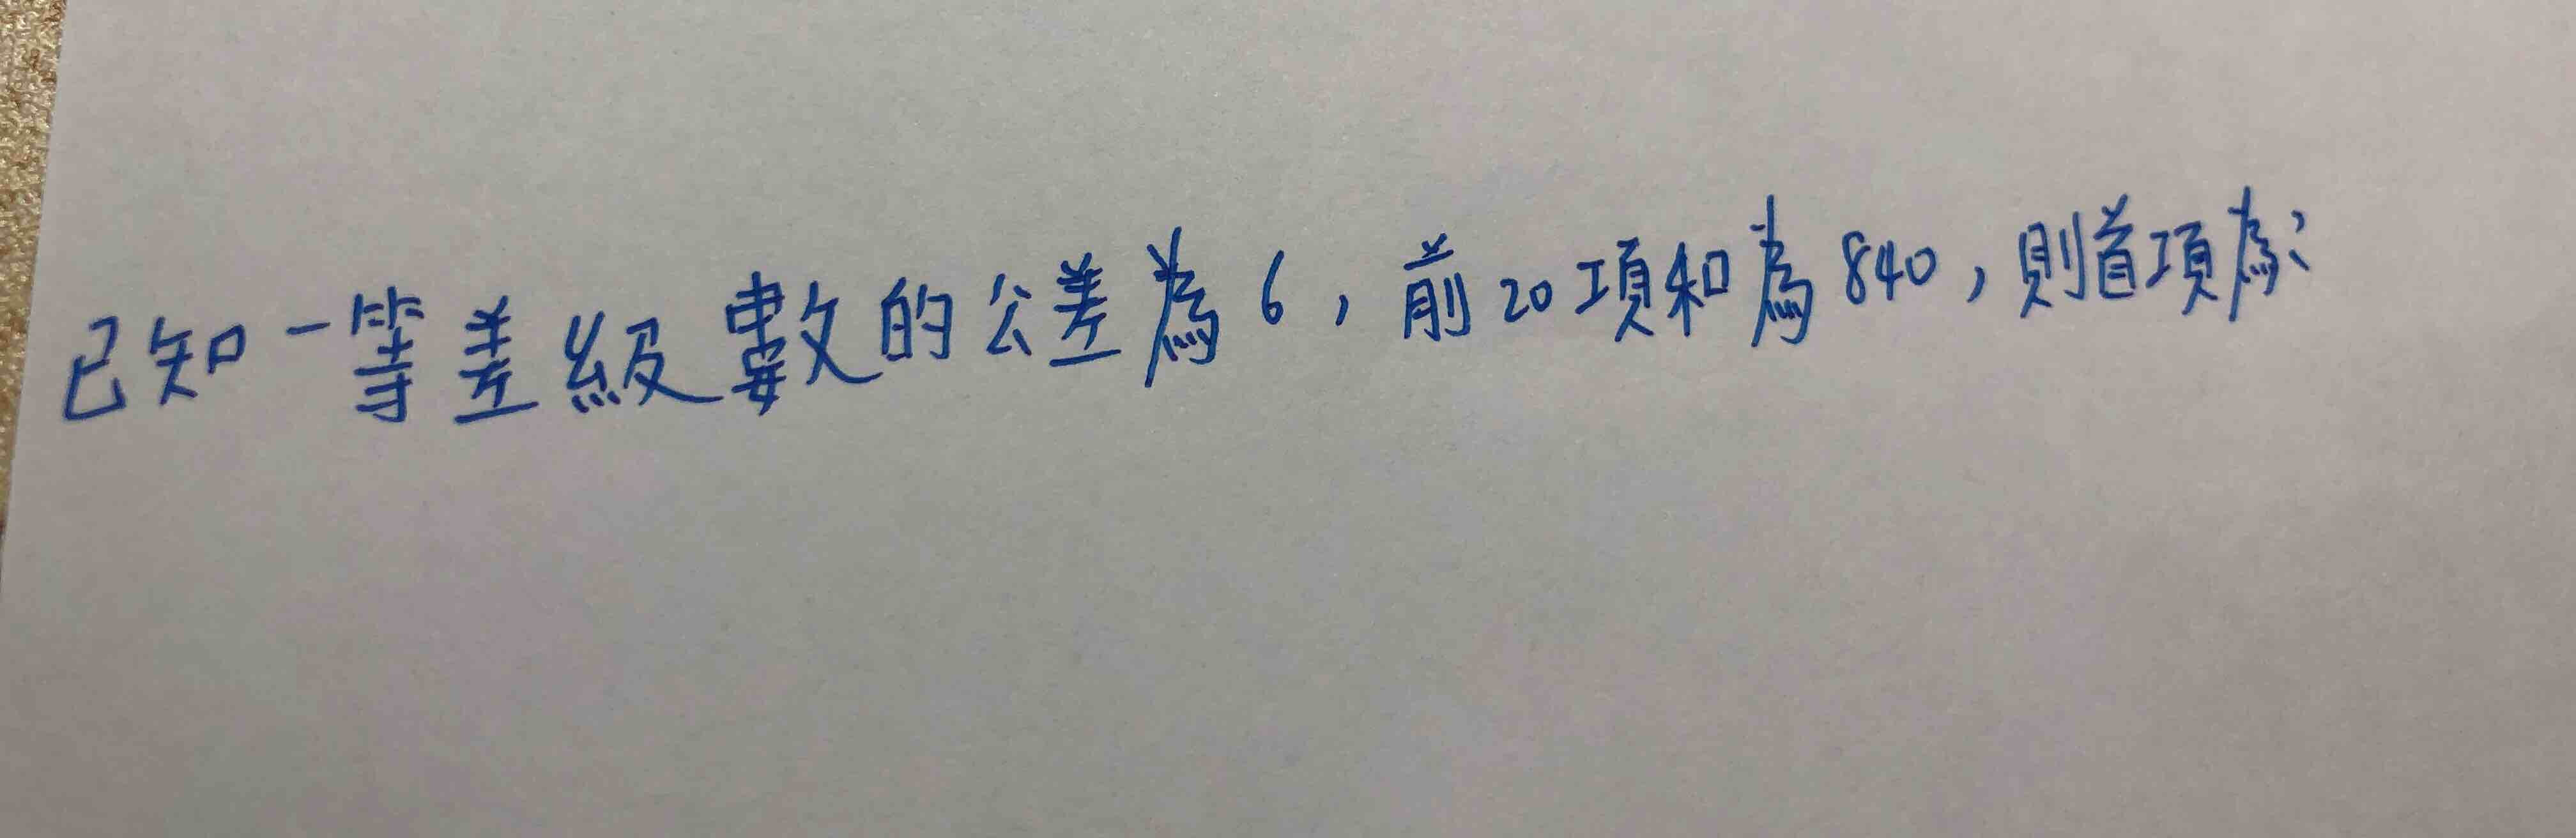 已知一等差級數的公差為6，前20項和為840，則首項為：